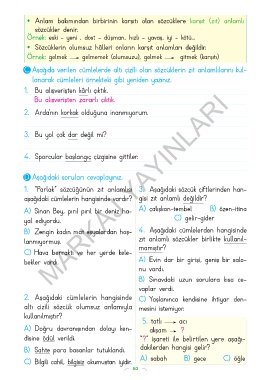 • Anlam bakımından birbirinin karşıtı olan sözcüklere karşıt (zıt) anlamlı
sözcükler denir.
Örnek: eski - yeni , dost - düşman, hızlı - yavaş, iyi - kötü...
• Sözcüklerin olumsuz hâlleri onların karşıt anlamları değildir.
Örnek: gelmek → gelmemek (olumsuzu), gelmek → gitmek (karşıtı)
Aşağıda verilen cümlelerde altı çizili olan sözcüklerin zıt anlamlılarını kul-
lanarak cümleleri örnekteki gibi yeniden yazınız.
1. Bu alışverişten kârlı çıktık.
Bu alışverişten zararlı çıktık.
2. Arda'nın korkak olduğuna inanmıyorum.
3. Bu yol çok dar değil mi?
4. Sporcular başlangıç çizgisine gittiler.
Aşağıdaki soruları cevaplayınız.
1. "Parlak" sözcüğünün zıt anlamlısı
aşağıdaki cümlelerin hangisinde vardır?
A) Sinan Bey, pırıl pırıl bir deniz ha-
yal ediyordu.
B) Zengin kadın mat eşyalardan hoş-
lanmıyormuş.
C) Hava berraktı ve her yerde kele-
bekler vardı.
2. Aşağıdaki cümlelerin hangisinde
altı çizili sözcük olumsuz anlamıyla
kullanılmıştır?
A) Doğru davranışından dolayı ken-
disine ödül verildi.
B) Sahte para basanlar tutuklandı.
C) Bilgili cahil, bilgisiz okumuştan iyidir.
3. Aşağıdaki sözcük çiftlerinden han-
gisi zıt anlamlı değildir?
A) çalışkan-tembel B) özen-itina
C) gelir-gider
4. Aşağıdaki cümlelerden hangisinde
zıt anlamlı sözcükler birlikte kullanıl-
mamıştır?
A) Evin dar bir girişi, geniş bir salo-
nu vardı.
B) Sınavdaki uzun sorulara kısa ce-
vaplar verdi.
C) Yaşlanınca kendisine ihtiyar den-
mesini istemiyor.
5. tatlı → acı
akşam → ?
"?" işareti ile belirtilen yere aşağı-
dakilerden hangisi gelir?
A) sabah B) gece C) öğle
MARKA YAYINLARI